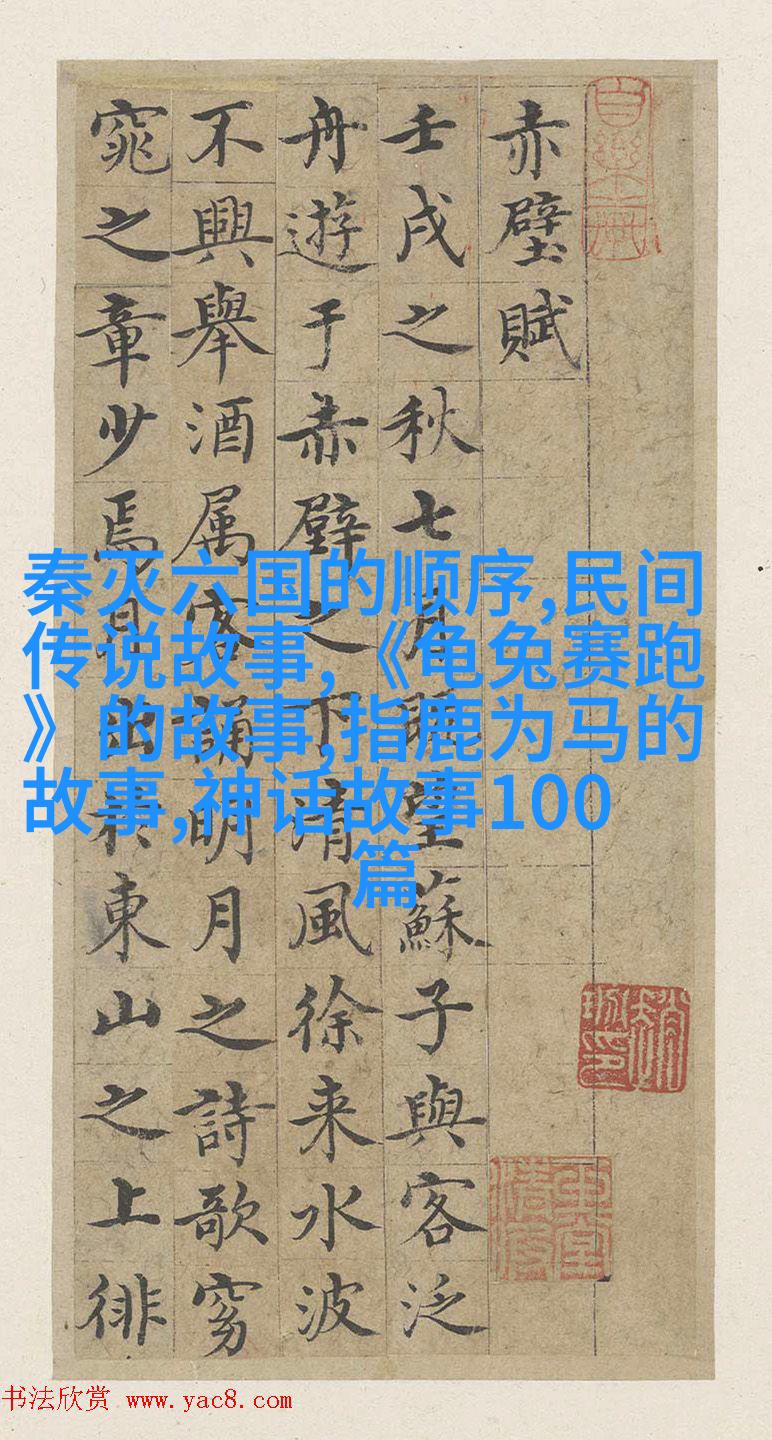 赤壁賦
壬戌之秋七月既望蘇子與客泛
舟遊于赤壁之下清風徐来水波
不興舉酒属客誦明月之詩歌窈
窕之章少焉月出於東山之上徘
秦灭六国的顺序,民间
传说故事,《龟兔赛跑
》的故事,指鹿为马的
故事,神话故事100
篇
书法欣赏 www.yac8.com